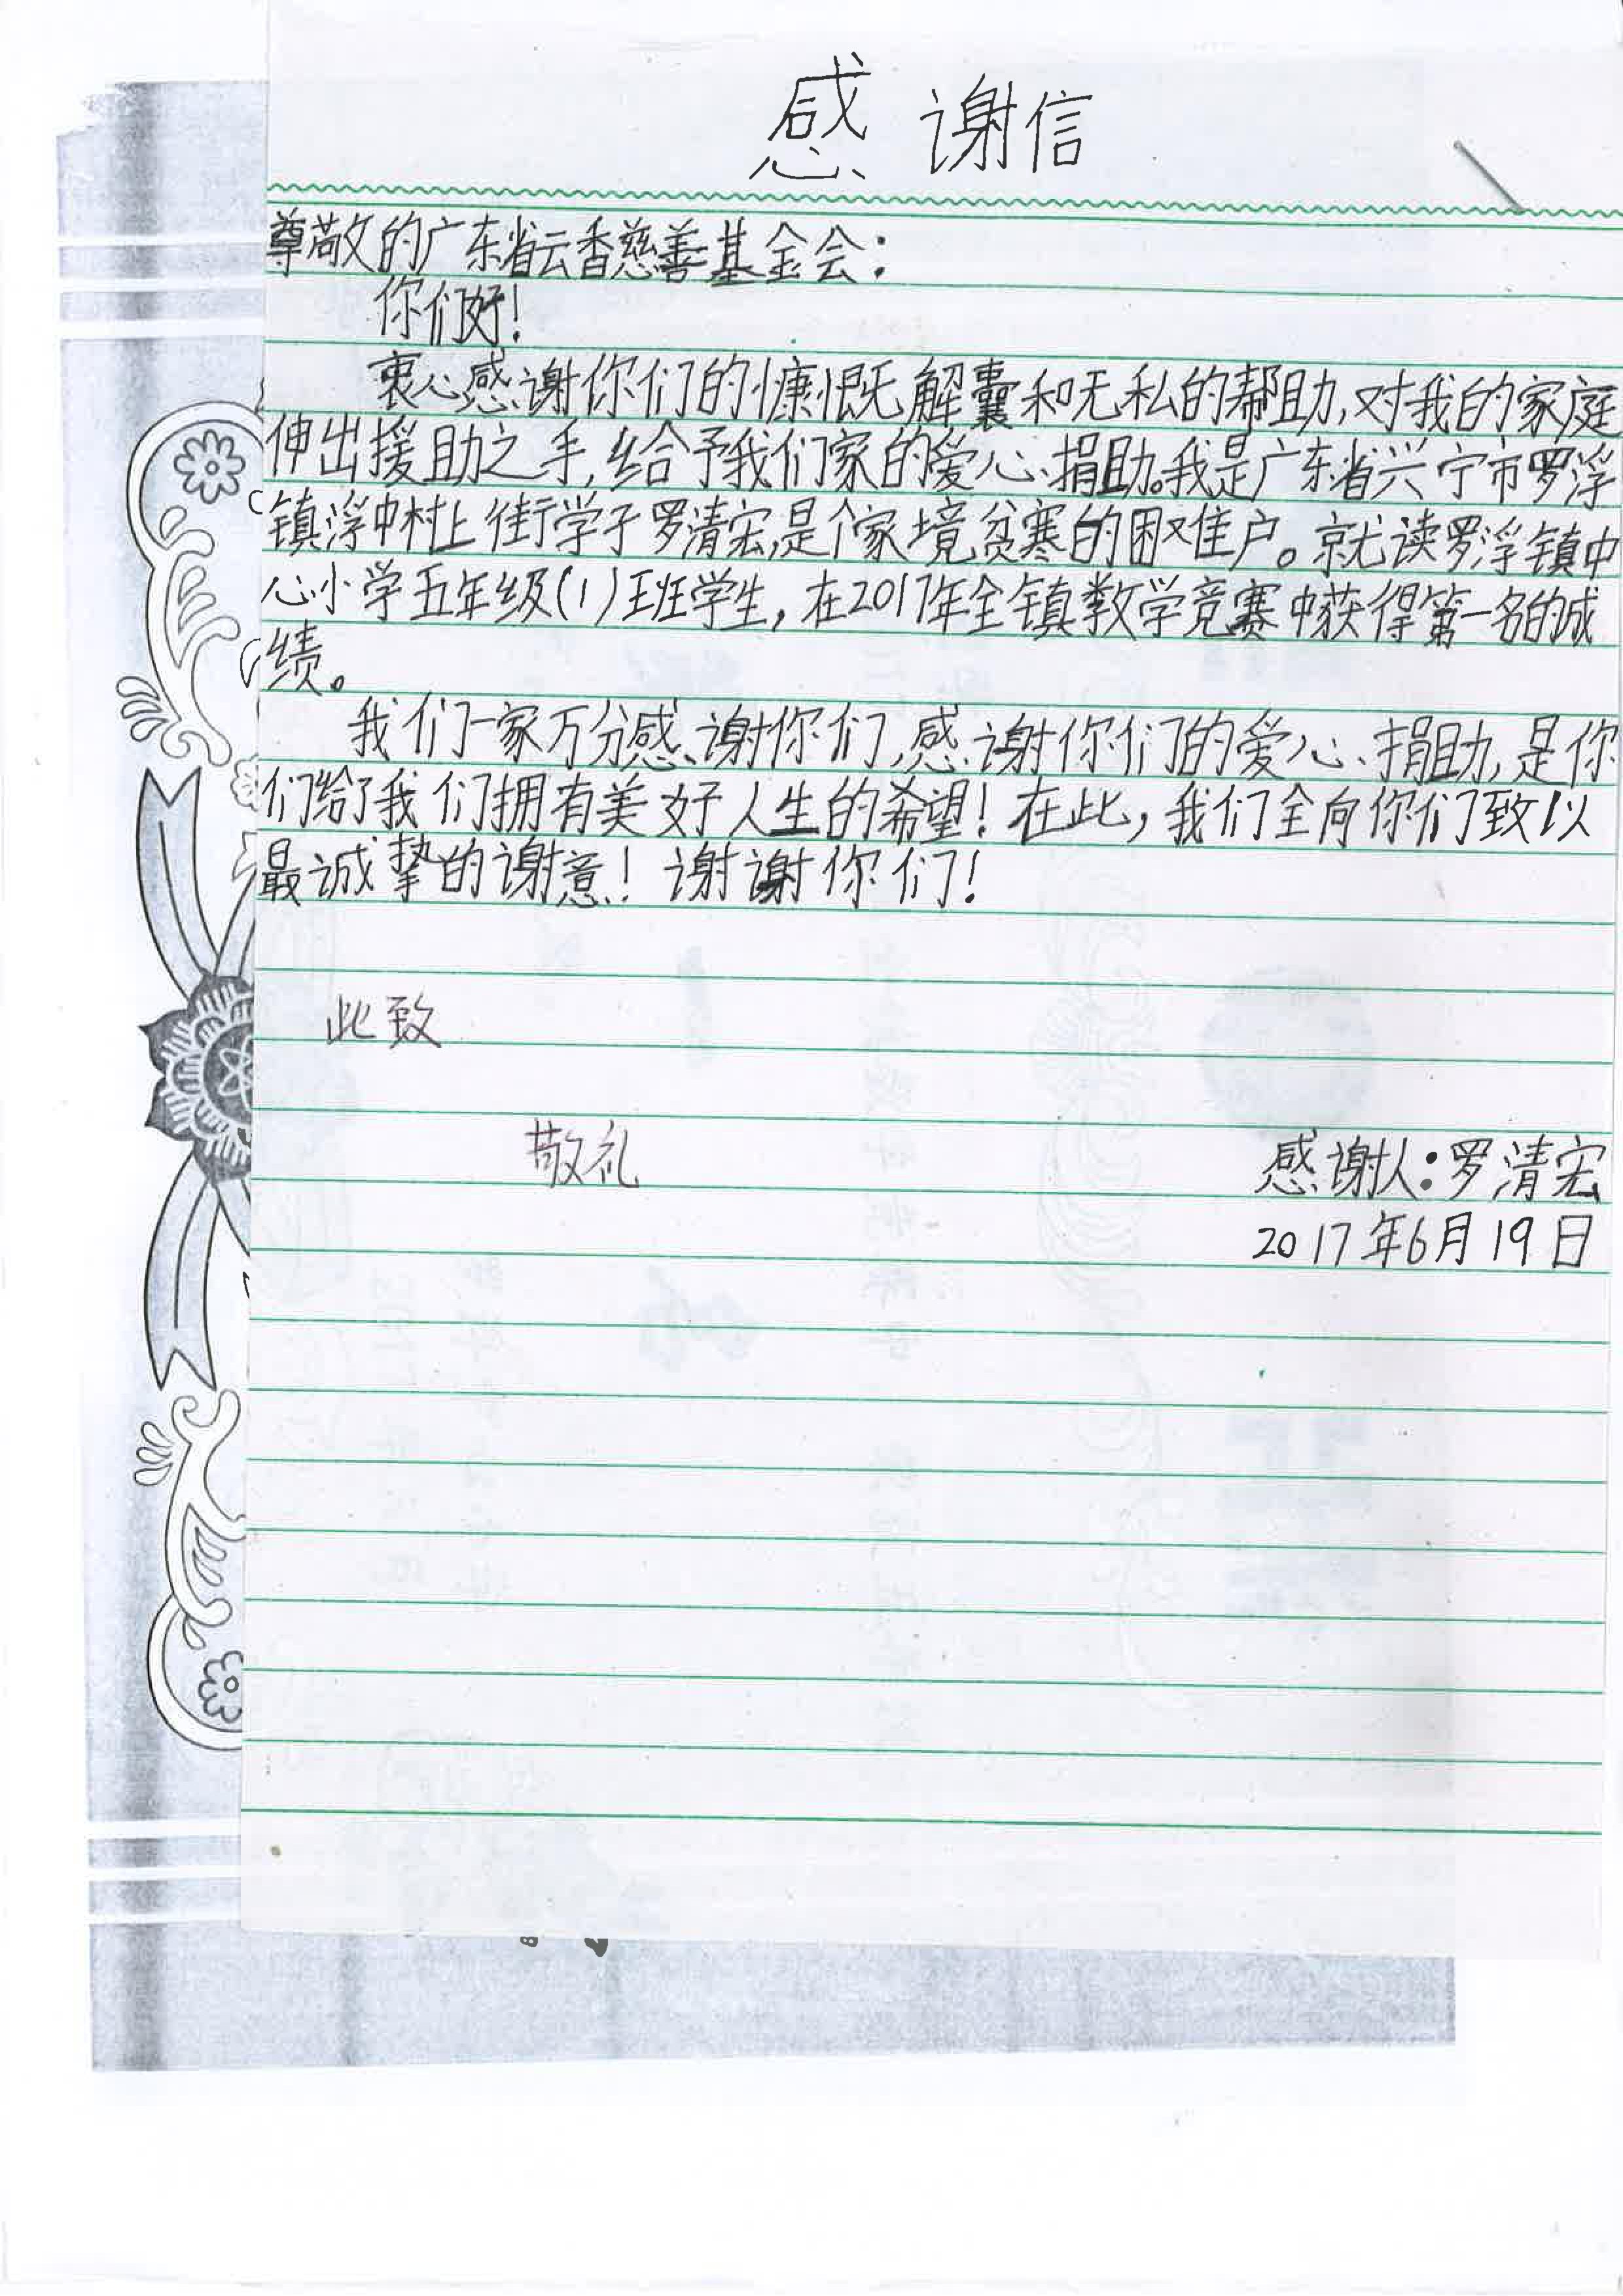 感谢信
尊敬的广东省云香慈善基金会：
你们好！
衷心感谢你们的慷慨解囊和无私的帮助，对我的家庭
伸出援助之手，给予我们家的爱心捐助。我是广东省兴宁市罗浮
镇浮中村上街学子罗清宏，是个家境贫寒的困难户。就读罗浮镇中
心小学五年级（1）班学生，在2017年全镇数学竞赛中获得第一名的成
绩。
我们一家万分感谢你们，感谢你们的爱心捐助，是你
们给了我们拥有美好人生的希望！在此，我们全向你们致以
最诚挚的谢意！谢谢你们！
此致
敬礼
感谢人：罗清宏
2017年6月19日